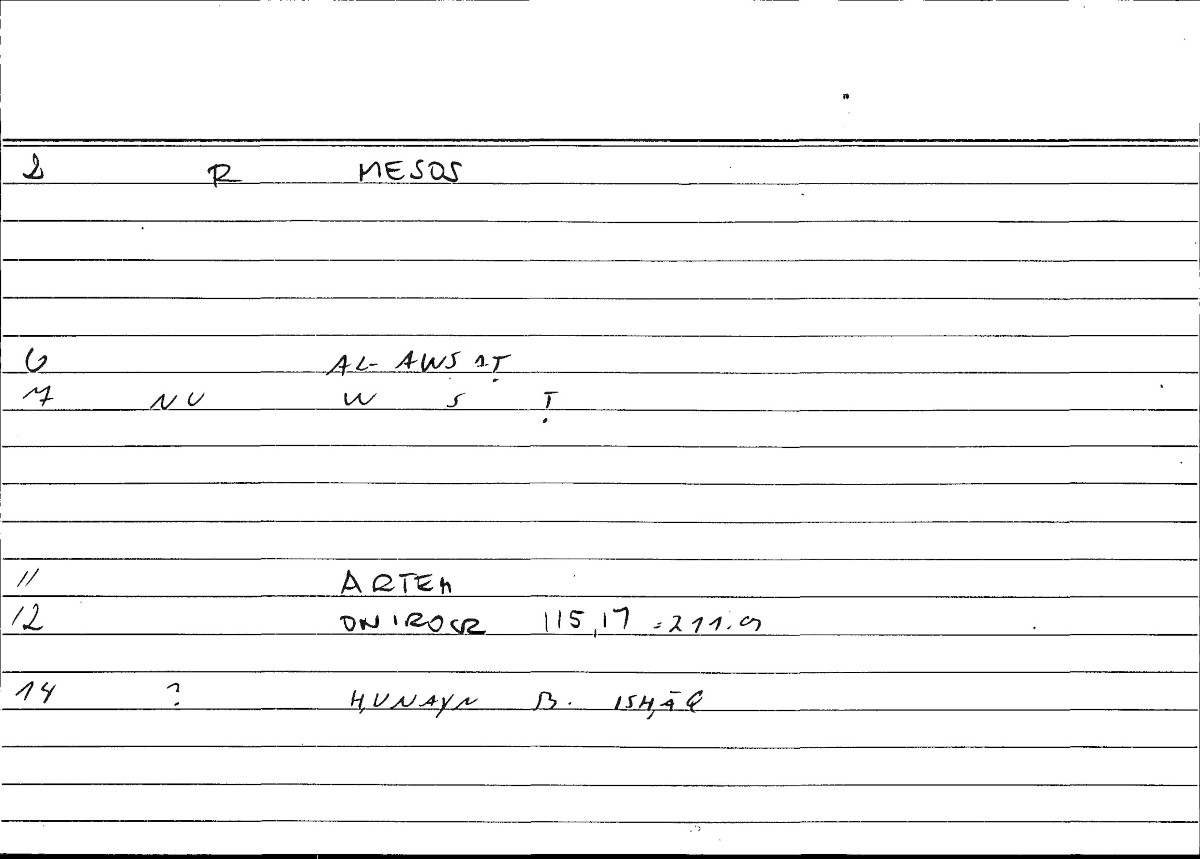 2 R MESOS
6 AL-AWSAṬ
7 NU W S Ṭ
11 ARTEM
12 ONIROCR 115,17 = 211.9
14 ? ḤUNAYN B. ISḤĀQ